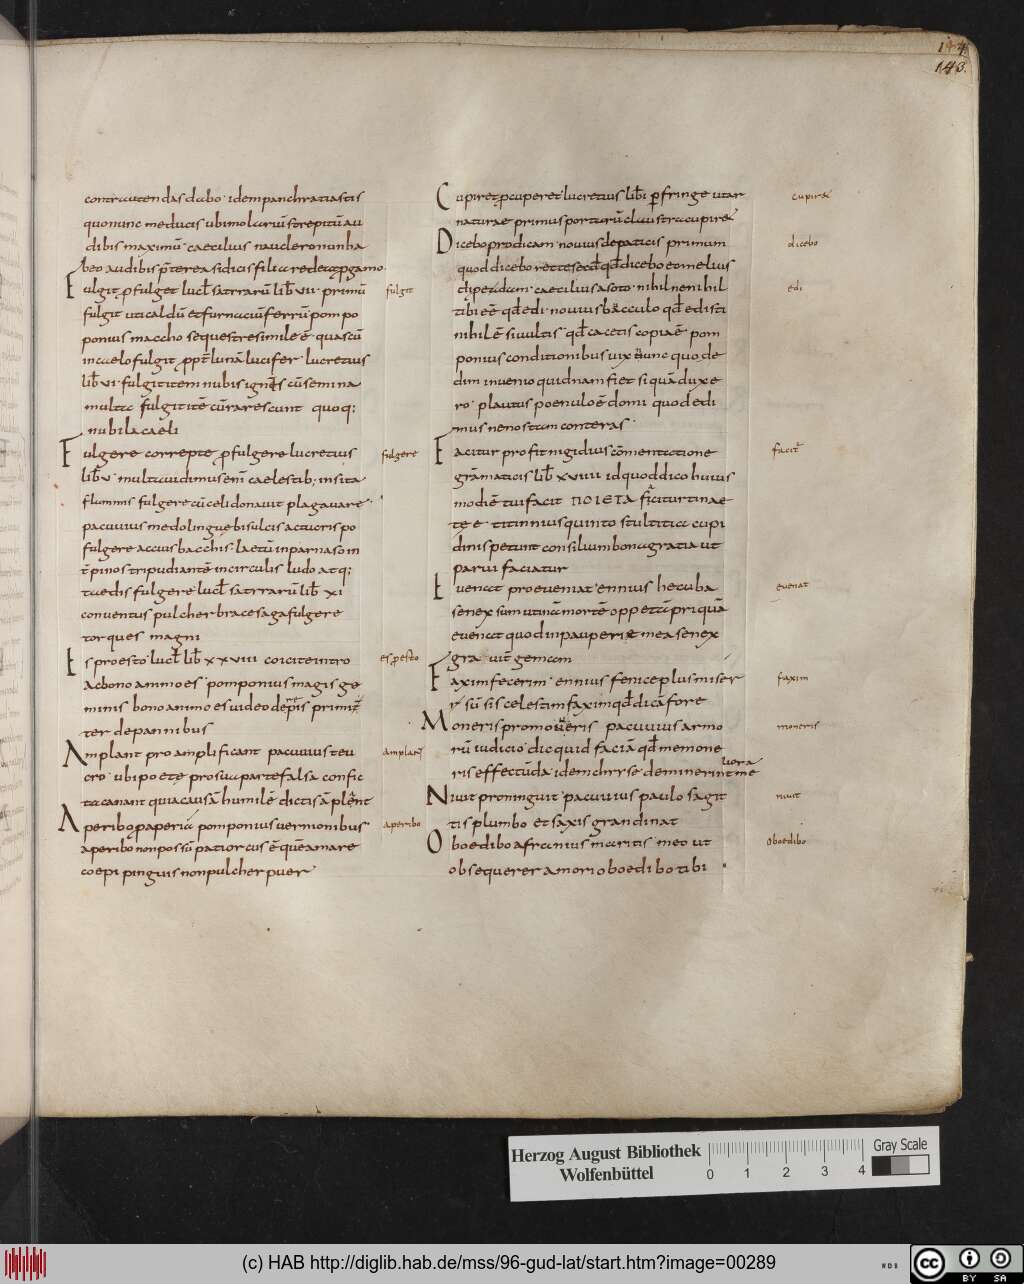 144
143.
contra utendas dabo · idem panchratiastis
quo nunc me ducis ubi molarũ strepitũ au
dibis maximũ · caecilius nauclero nunha
beo audibis p̃terea si dicis filia redeat
Fulgit ꝓ fulget lucł satrrarũ lib̃ VII · primũ
fulgit uti caldũ et furnacium ferrũ · pompo
ponius maccho sequestre simile ẽ · quascũ
in caelo fulgit ꝓpt̃ lunã lucifer · lucretius
lib̃ VI · fulgit item nubis ignes cũ semina
multa fulgit itẽ cũ rarescunt quoq;
nubila caeli
Fulgere correpte ꝓ fulgere lucretius
lib̃ V · multa uidimus enĩ caelestib; insita
flammis fulgere cũ celi donauit plaga uare
pacuuius medo linguę bisulcis actu crispo
fulgere accius bacchis · laetũ in parnaso in
t̃ pinos tripudiantẽ in circulis ludo atq;
taedis fulgere · lucł satrrarũ lib̃ XI
conuentus pulcher brace saga fulgere
torques magni
Es pro esto · lucł lib̃ XXVIII coicite intro
ac bono animo es · pomponius magis ge
minis bono animo es uideo
ter de pannibus
Amplant pro amplificant pacuuius teu
cro · ubi poetę pro sua parte falsa confic
ta canant qui causã humilẽ dictis ãplent
Aperibo ꝓ aperiã pomponius uermonibus
aperibo non possũ patior cus ẽ quẽ amare
coepi pinguis non pulcher puer
fulgit
fulgere
es p esto
amplant
aperibo
Cupiret ꝓ cuperet lucretius lib̃ I perfringe utar
naturae primus portarũ claustra cupiret
Dicebo pro dicam · nouius depaticis primum
quod dicebo recte
dispereãdam · caecilius asoto · nihil ne nihil
tibi eẽ qđ edi · nouius bacculo qđ edisti
nihil ẽ si uultis qđ cacetis copia ẽ pom
ponius conditionibus uix nunc quod e
dim inuenio quidnam fiet si quã duxe
ro · plautus poenulo ẽ domi quod edi
mus ne nos tam conteras ·
Facitur pro fit nigidius cõmentatione
grãmaticis lib̃ XVIIII id quod dico huius
modi ẽ tui facit ΠΟΙΕΤΑ facitur tinae
te e titinnius quinto stultitia cupi
dinis petunt consilium bonũ gratia ut
parui faciatur
Euenat pro eueniat ennius hecuba
senex sum utinã mortẽ oppetã priquã
euenat quod in pauperie mea senex
gra uit̃ gemam
Faxim fecerim · ennius fenice plus miser
r sũ si scelestim faxim qđ dicã fore
Moneris pro moueris pacuuius armo
rũ iudicio · dic quid faciã qđ me mone
ris effectũ da · idem chryse · di
Niuit pro ninguit · pacuuius paulo sagit
tis plumbo et saxis grandinat
Oboedibo afranius maritis meo ut
obsequerer amori oboedibo tibi
cupiret
dicebo
edi
facit̃
euenat
faxim
moneris
niuit
oboedibo
Herzog August Bibliothek
Wolfenbüttel
0 1 2 3 4
Gray Scale
(c) HAB http://diglib.hab.de/mss/96-gud-lat/start.htm?image=00289
WDB
cc BY SA